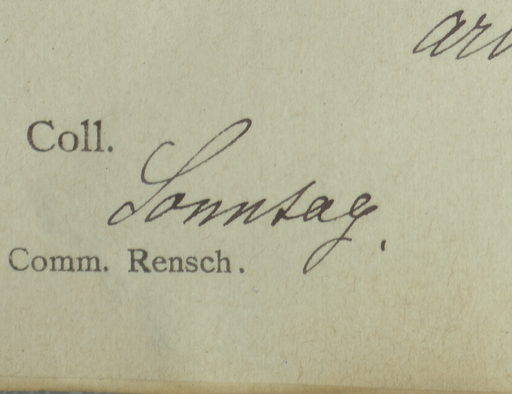 Coll.
Sonntag.
Comm. Rensch.